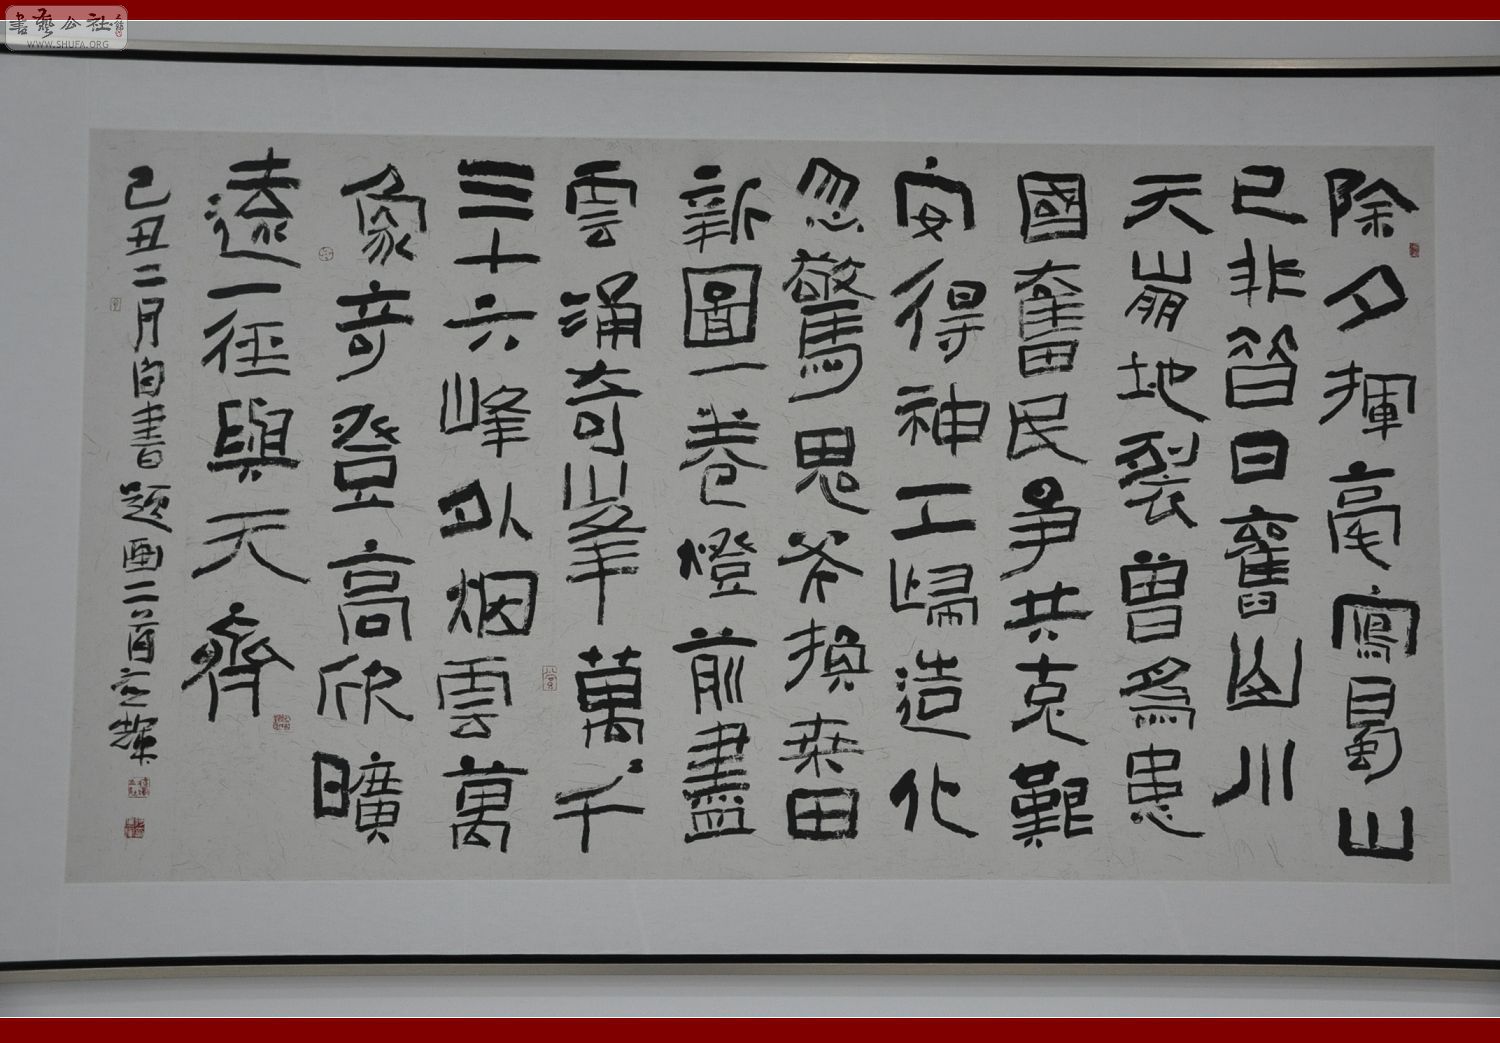 書藝公社
WWW.SHUFA.ORG
除夕揮毫寫蜀山
已非昔日舊山川
天崩地裂曾為患
國奮民爭共克艱
安得神工歸造化
忽驚鬼斧換桑田
新圖一卷燈前盡
雲涌奇峯萬〻千
三十六峰外烟雲萬
象奇登高欣曠
遠一徑與天齊
己丑二月自書題画二首輝